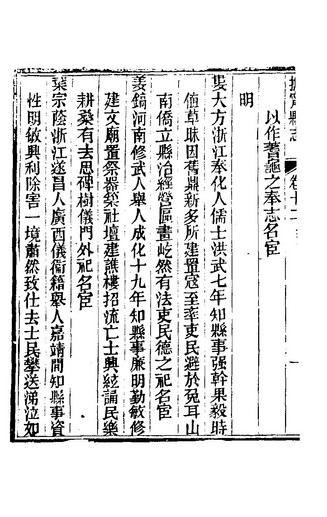 撫寧縣志
卷十二
一
以作蓍龜之奉志名宦
明
婁大方浙江奉化人儒士洪武七年知縣事强幹果毅時
值草昧因舊鼎新多所建置寇至率吏民避於兔耳山
南僑立縣治經營區畫屹然有法吏民德之祀名宦
姜鎬河南修武人舉人成化十九年知縣事廉明勤敏修
建文廟置祭器築社壇建譙樓招流亡士興絃誦民樂
耕桑有去思碑樹儀門外祀名宦
葉宗蔭浙江遂昌人廣西儀衞籍舉人嘉靖間知縣事資
性明敏興利除害一境肅然致仕去士民攀送涕泣如